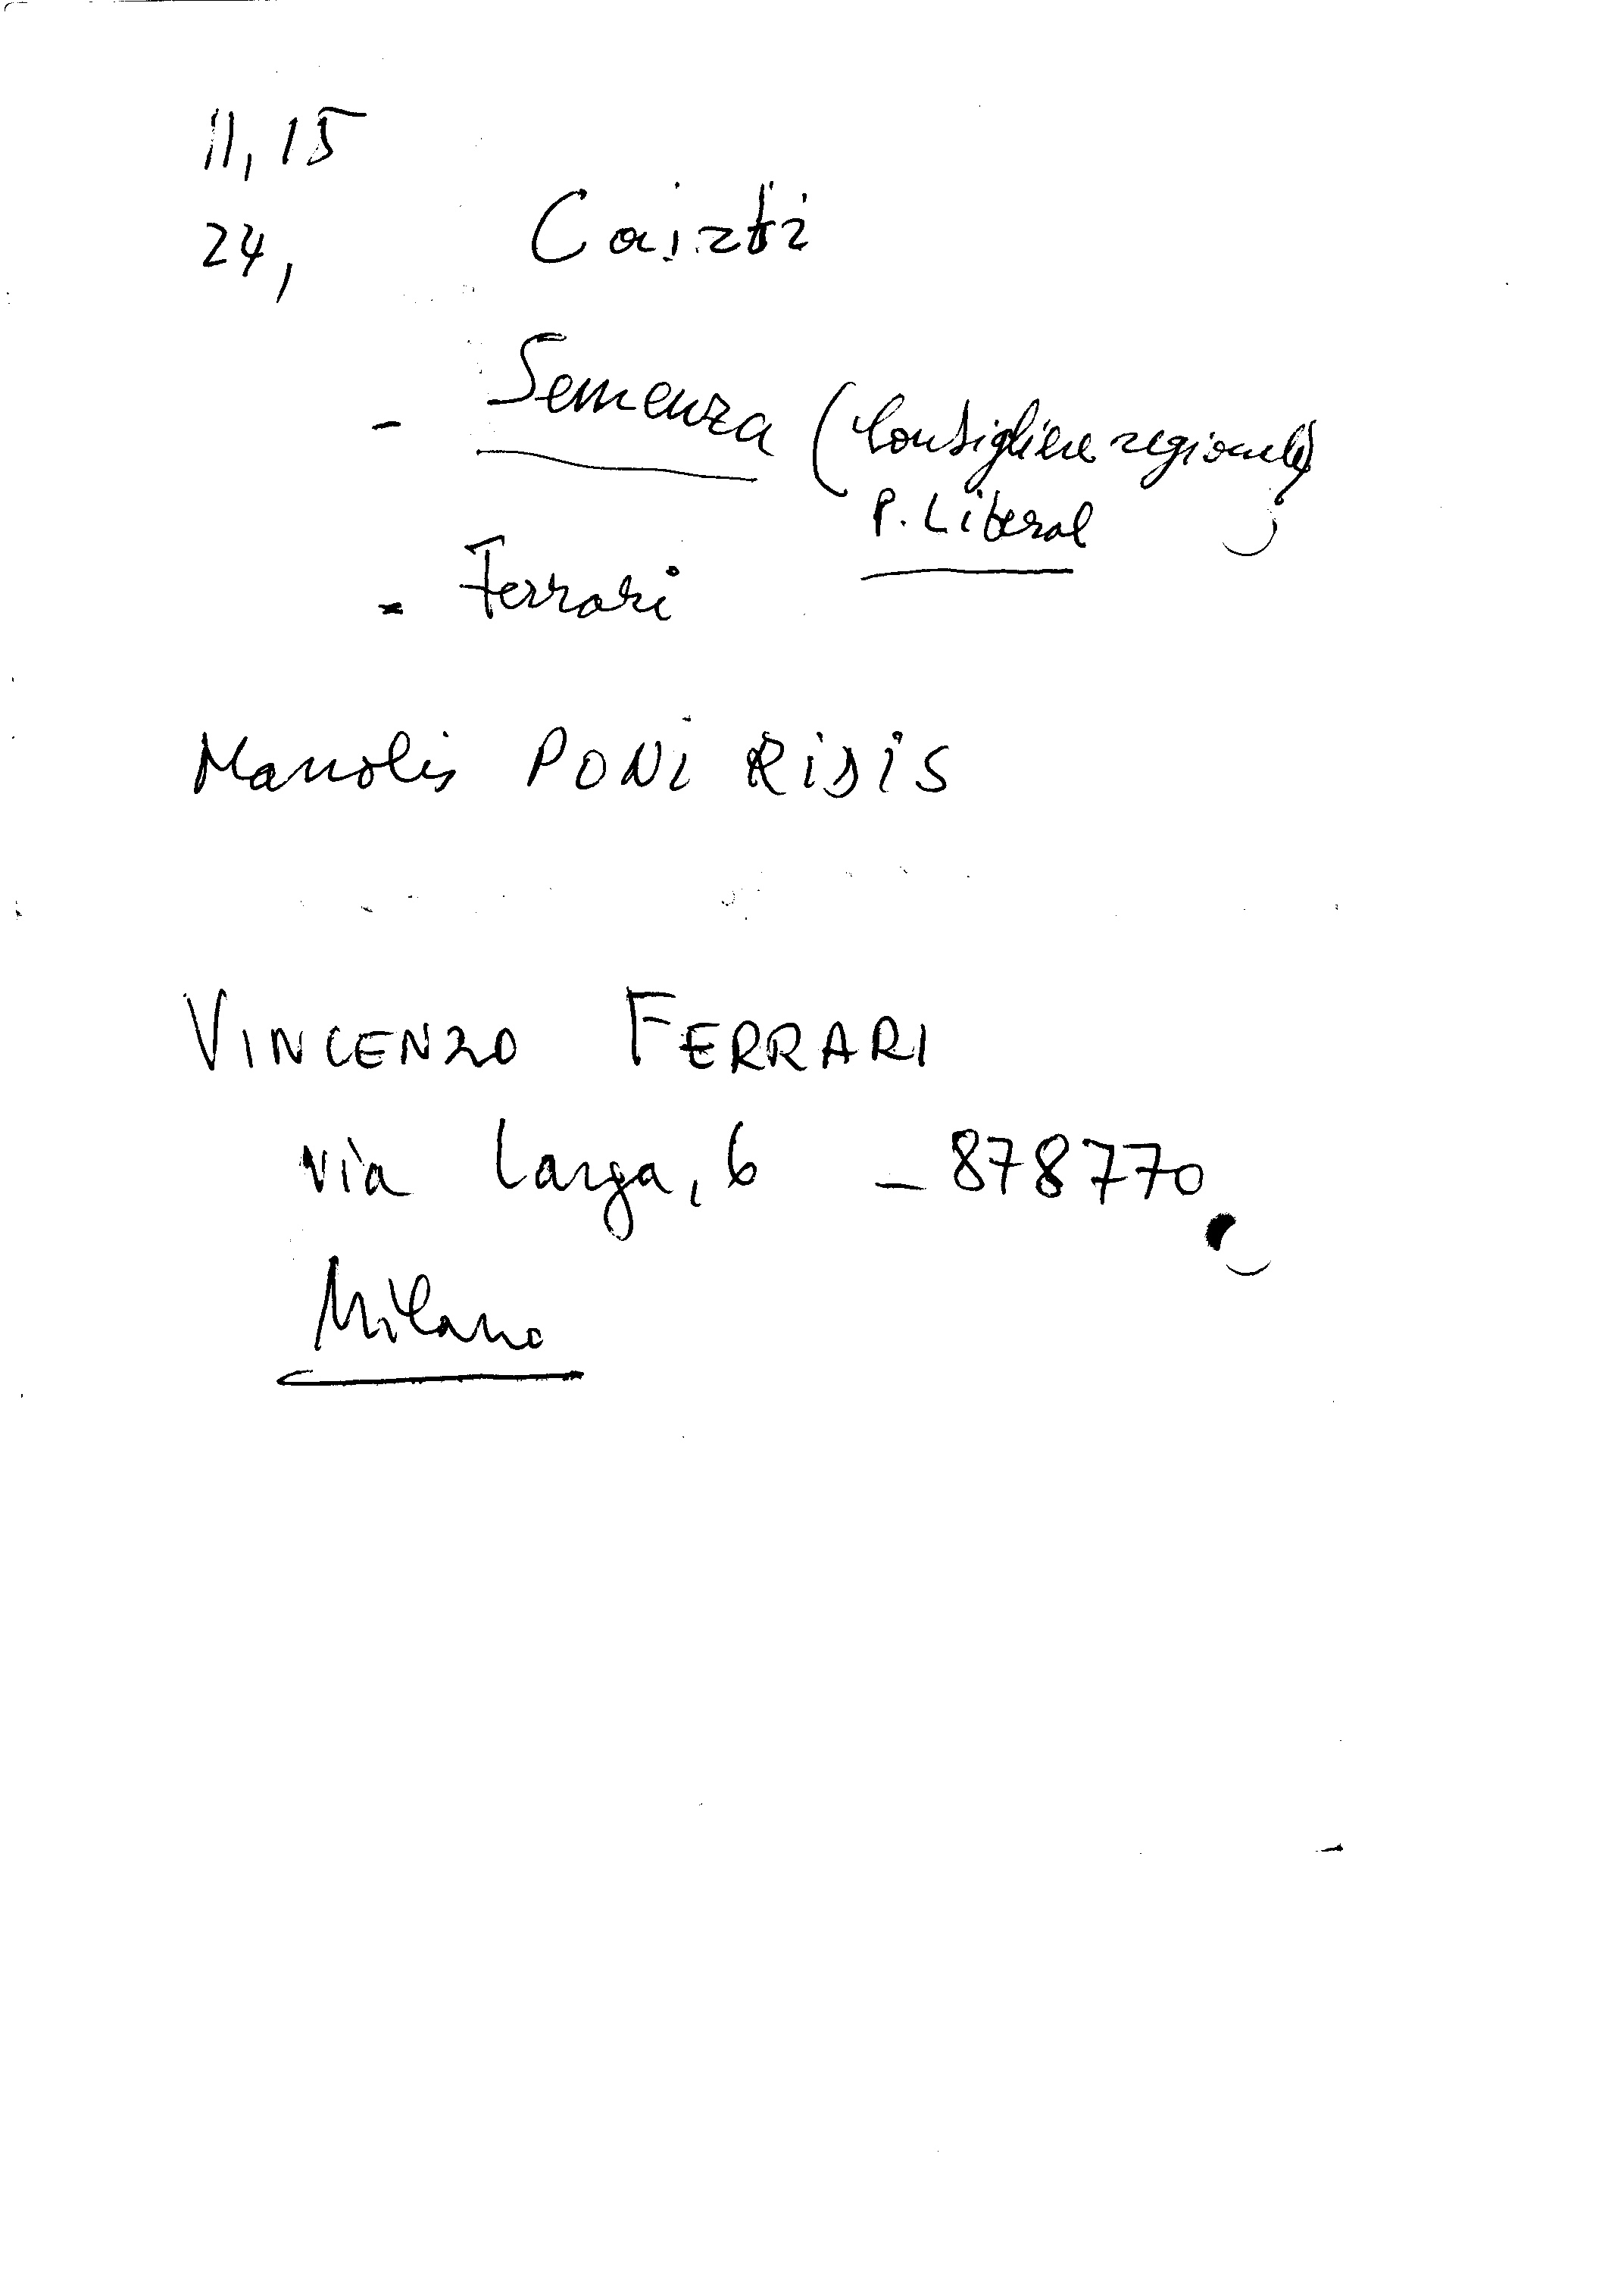 11,15
24, Caizzi
- Semenza (Consigliere regionale)
P. Liberal
- Ferrari
Manolis PONiRiDiS
VINCENZO FERRARI
via Larga, 6 - 878770
Milano